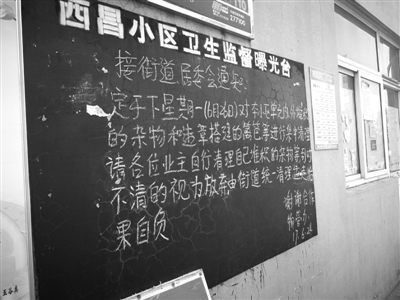 110
277100
西昌小区卫生监督曝光台
接街道居委会通知:
定于下星期一(6月26日)对本小区单元内外堆放
的杂物和违章搭建的 进行集中清理
请各位业主自行清理自己堆积的杂物等到时
不清的视为放弃由街道统一清理
果自负
谢谢合作
17.6.24